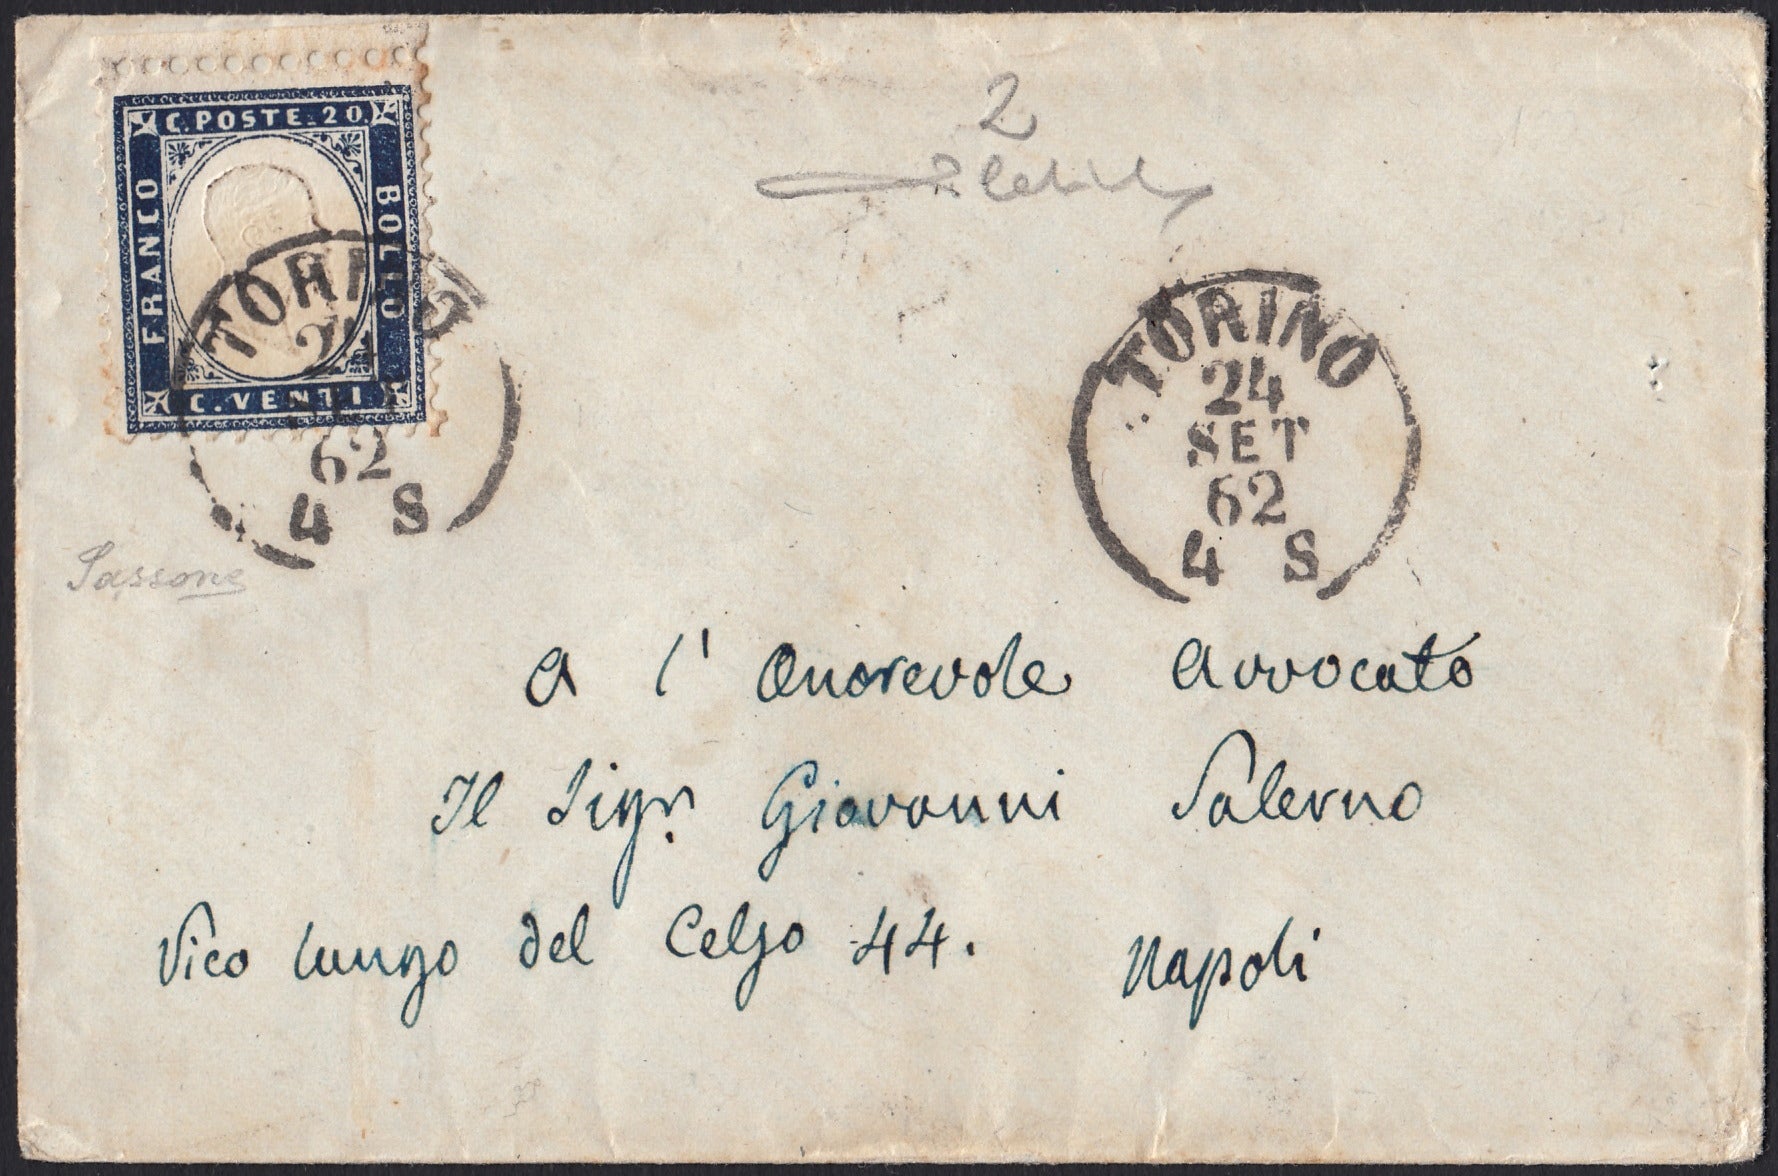 C. POSTE. 20.
FRANCO
BOLLO
C. VENTI
2
TORINO
62
4 S
TORINO
24
SET
62
4 S
Sassone
a l' Onorevole Avvocato
Il Sigr. Giovanni Salerno
Vico lungo del Celso 44. Napoli